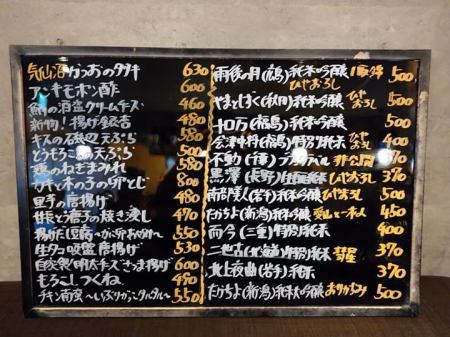 気仙沼かつおのタタキ 630
アンキモポン酢 600
鮒の酒盗クリームチーズ 460
新物!揚げ銀杏 480
キスの磯辺天ぷら 580
とうもろこしの天ぷら 500
鶏のねぎまみれ 580
カキと木の子の卵とじ 800
里芋の唐揚げ 480
甘長と唐子の焼き浸し 470
揚げだし豆腐 550
生タコ吸盤唐揚げ 530
自家製明太チーズさつま揚げ 600
もろこしつくね 490
チキン南蛮〜いぶりがっこタルタル〜 550
雨後の月(広島)純米吟醸 ひやおろし 500
やまとしずく(秋田)純米吟醸 ひやおろし 500
十ロ万(福島)純米吟醸 ひやおろし 500
会津中将(福島)特別純米 ひやおろし 400
不動(千葉) 非公開 470
黒澤(長野) ひやおろし 370
南部美人(岩手)純米吟醸 ひやおろし 500
たかちよ(新潟)純米吟醸 愛山 450
而今(三重)特別純米 400
二世古(北海道)特別純米 彗星 370
北上夜曲(岩手)純米 370
たかちよ(新潟)純米大吟醸 おりがらみ 500